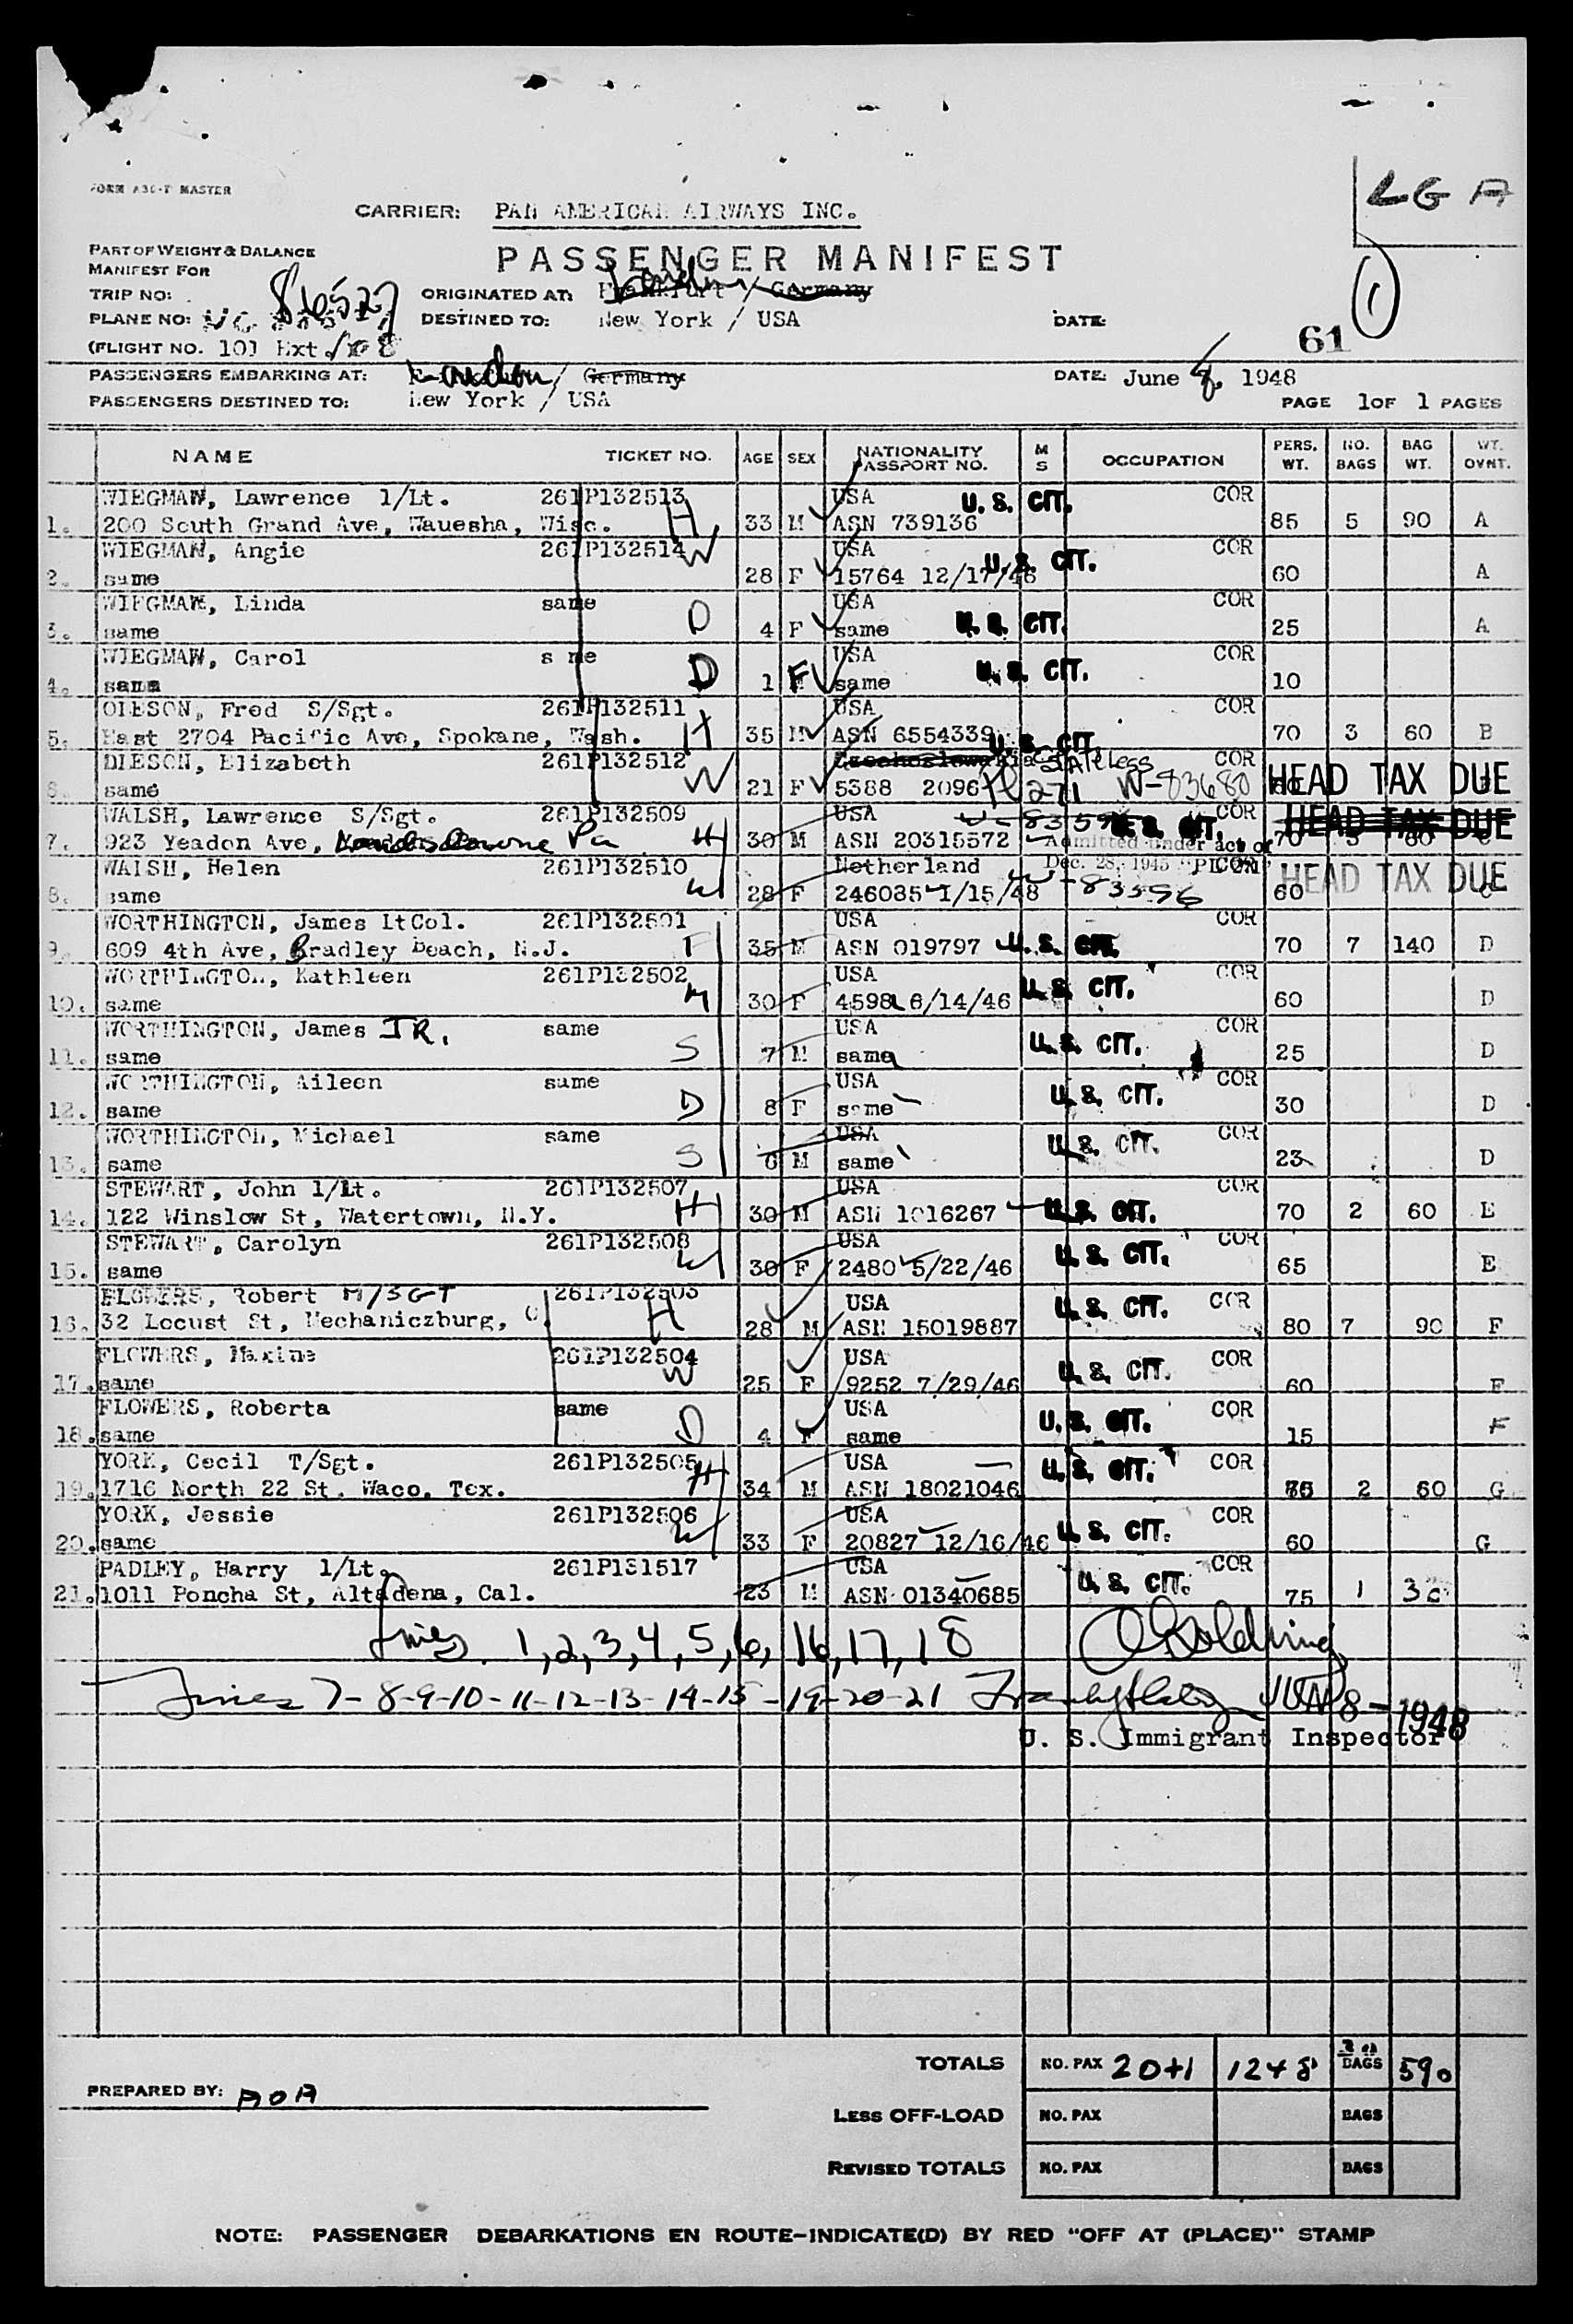 FORM A36-T MASTER
LGA
CARRIER: PAN AMERICAN AIRWAYS INC.
PASSENGER MANIFEST
PART OF WEIGHT & BALANCE
MANIFEST FOR
TRIP NO:
ORIGINATED AT: Frankfurt / Germany London
PLANE NO: NC 86527
DESTINED TO: New York / USA
DATE:
61
1
(FLIGHT NO. 101 Ext
PASSENGERS EMBARKING AT: London / Germany
DATE: June 8, 1948
PASSENGERS DESTINED TO: New York / USA
PAGE 1 OF 1 PAGES
NAME TICKET NO. AGE SEX NATIONALITY PASSPORT NO. M S OCCUPATION PERS. WT. NO. BAGS BAG WT. WT. OVNT.
WIEGMAN, Lawrence 1/Lt. 261P132513 USA U. S. CIT. COR
1. 200 South Grand Ave, Wauesha, Wisc. H 33 M ASN 739136 85 5 90 A
WIEGMAN, Angie 261P132514 W USA U. S. CIT. COR
2. same 28 F 15764 12/17/46 60 A
WIEGMAN, Linda same USA COR
3. same D 4 F same U. S. CIT. 25 A
WIEGMAN, Carol same USA COR
4. same D 1 F same U. S. CIT. 10
OLESON, Fred S/Sgt. 261P132511 USA COR
5. East 2704 Pacific Ave, Spokane, Wash. H 35 M ASN 6554339 U. S. CIT. 70 3 60 B
OLESON, Elizabeth 261P132512 Czechoslowakia Stateless COR
6. same W 21 F 5388 2096 W-83680 60 HEAD TAX DUE
WALSH, Lawrence S/Sgt. 261P132509 USA COR HEAD TAX DUE
7. 923 Yeadon Ave, Landsdowne Pa H 30 M ASN 20315572 U. S. CIT. 70 3 60 C
Admitted under act of
Dec. 28, 1945
WALSH, Helen 261P132510 Netherland COR HEAD TAX DUE
8. same W 28 F 246035 1/15/48 W-83596 60 C
WORTHINGTON, James LtCol. 261P132501 USA COR
9. 609 4th Ave, Bradley Beach, N.J. F 35 M ASN 019797 U. S. CIT. 70 7 140 D
WORTHINGTON, Kathleen 261P132502 USA COR
10. same M 30 F 4598 6/14/46 U. S. CIT. 60 D
WORTHINGTON, James JR. same USA COR
11. same S 7 M same U. S. CIT. 25 D
WORTHINGTON, Aileen same USA COR
12. same D 8 F same U. S. CIT. 30 D
WORTHINGTON, Michael same USA COR
13. same S 6 M same U. S. CIT. 23 D
STEWART, John 1/Lt. 261P132507 USA COR
14. 122 Winslow St, Watertown, N.Y. H 30 M ASN 1016267 U. S. CIT. 70 2 60 E
STEWART, Carolyn 261P132508 USA COR
15. same W 30 F 2480 5/22/46 U. S. CIT. 65 E
FLOWERS, Robert M/SGT 261P132503 USA U. S. CIT. COR
16. 32 Locust St, Mechaniczburg, O. H 28 M ASN 15019887 80 7 90 F
FLOWERS, Maxine 261P132504 USA COR
17. same W 25 F 9252 7/29/46 U. S. CIT. 60 F
FLOWERS, Roberta same USA COR
18. same D 4 F same U. S. CIT. 15 F
YORK, Cecil T/Sgt. 261P132505 USA U. S. CIT. COR
19. 1716 North 22 St. Waco, Tex. H 34 M ASN 18021046 75 2 60 G
YORK, Jessie 261P132506 USA COR
20. same W 33 F 20827 12/16/46 U. S. CIT. 60 G
PADLEY, Harry 1/Lt. 261P131517 USA COR
21. 1011 Poncha St, Altadena, Cal. 23 M ASN 01340685 U. S. CIT. 75 1 30
Lines 1,2,3,4,5,6, 16,17,18
Lines 7-8-9-10-11-12-13-14-15-19-20-21 JUN 8-1948
U. S. Immigrant Inspector
TOTALS NO. PAX 20+1 1248 30 BAGS 590
PREPARED BY: AOA
LESS OFF-LOAD NO. PAX BAGS
REVISED TOTALS NO. PAX BAGS
NOTE: PASSENGER DEBARKATIONS EN ROUTE-INDICATE(D) BY RED "OFF AT (PLACE)" STAMP